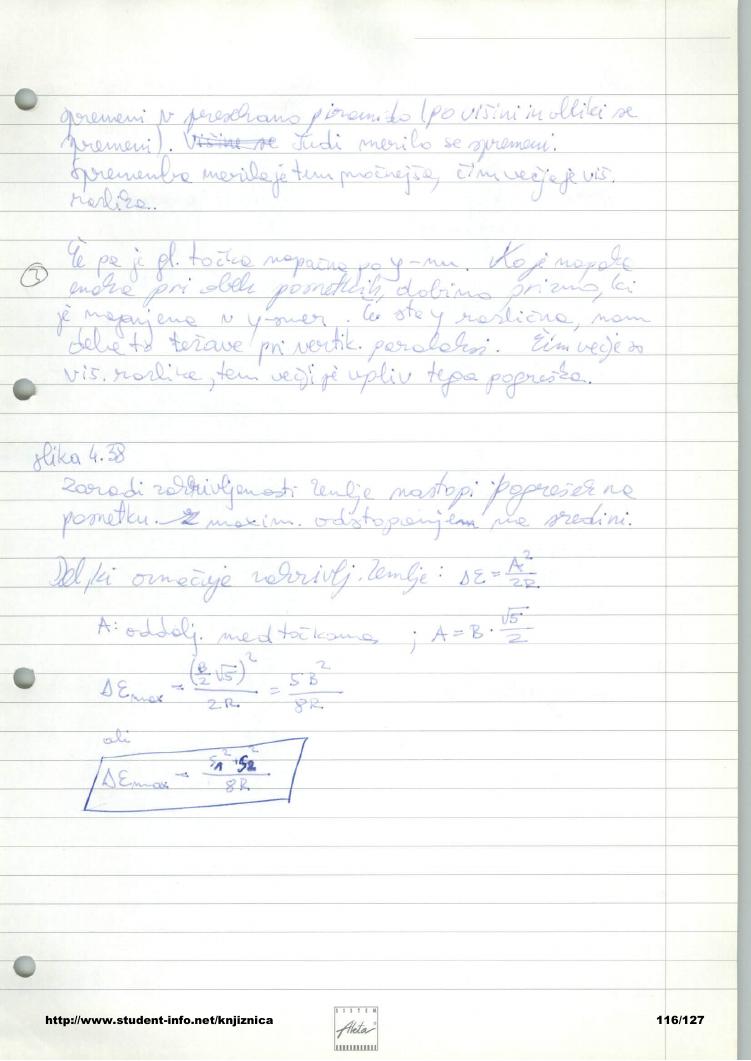 spremeni v presekano piramido (po višini in obliki se
spremeni). Višine se Tudi merilo se spremeni.
Sprememba merila je tem močnejša, čim večja je viš.
razlika..
3 Če pa je gl. točka napačna po y-nu. Ko je napaka
enaka pri obeh posnetkih, dobimo prizmo, ki
je nagnjena v y-smer. Če sta y različna, nam
dela to težave pri vertik. paralaksi. Čim večje so
viš. razlike, tem večji je vpliv tega pogreška.
slika 4.38
Zaradi zakrivljenosti Zemlje nastopi pogrešek na
posnetku. z maxim. odstopanjem na sredini.
Del, ki označuje zakrivlj. Zemlje: ΔE = A²/2R
A: oddalj. med točkama ; A = B · √5/2
ΔE max = (B/2 √5)²/2R = 5B²/8R
ali
ΔE max = S1² · S2²/8R
http://www.student-info.net/knjiznica
SISTEM
Aleta
116/127